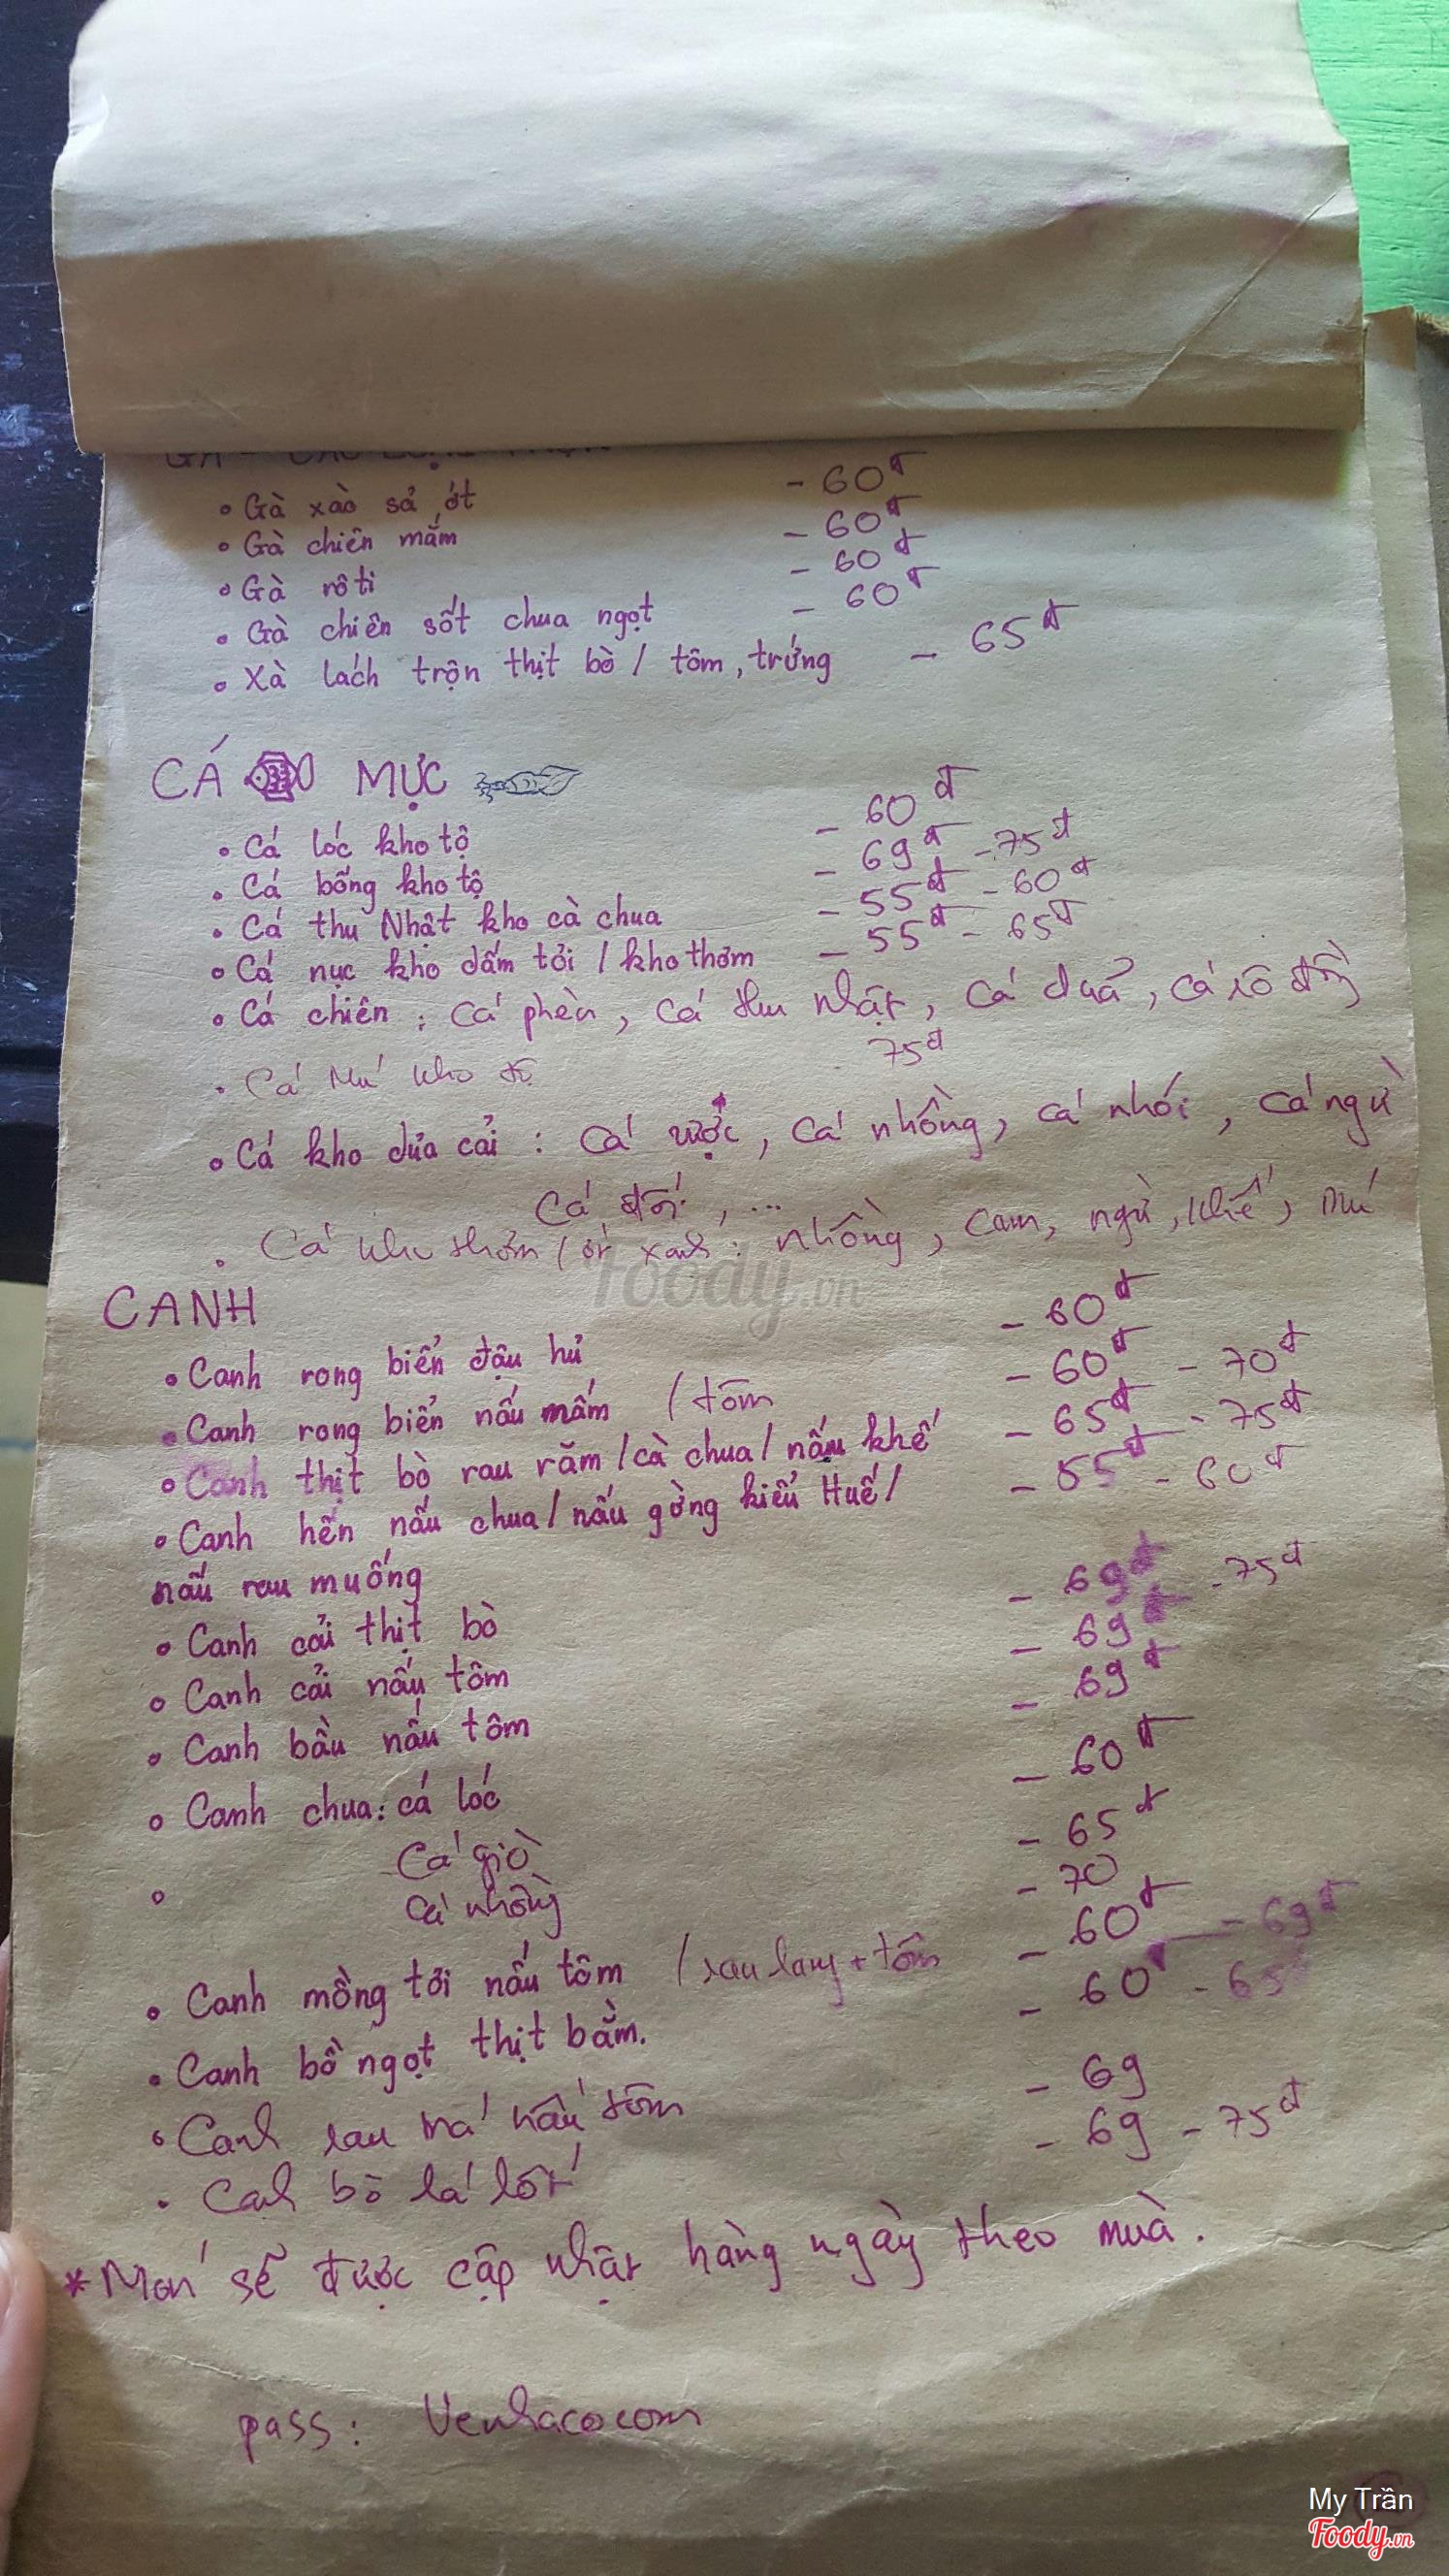 GÀ - CÁC LOẠI TRỘN
• Gà xào sả ớt - 60đ
• Gà chiên mắm - 60đ
• Gà rôti - 60đ
• Gà chiên sốt chua ngọt - 60đ
• Xà lách trộn thịt bò / tôm, trứng - 65đ
CÁ MỰC
• Cá lóc kho tộ - 60đ
• Cá bống kho tộ - 69đ - 75đ
• Cá thu Nhật kho cà chua - 55đ - 60đ
• Cá nục kho dấm tỏi / kho thơm - 55đ - 65đ
• Cá chiên : Cá phèn, cá thu nhật, cá đuả, cá rô đồng
• Cá Mú kho tộ 75đ
• Cá kho dưa cải : Cá nược, cá nhồng, cá nhói, cá ngừ
Cá đối, ...
• Cá kho thơm / ớt xanh : nhồng, cam, ngừ, khế, mú
CANH
• Canh rong biển đậu hủ - 60đ
• Canh rong biển nấu mắm / tôm - 60đ - 70đ
• Canh thịt bò rau răm / cà chua / nấu khế - 65đ - 75đ
• Canh hến nấu chua / nấu gờng kiểu Huế / - 55đ - 60đ
nấu rau muống
• Canh cải thịt bò - 69đ
• Canh cải nấu tôm - 69đ - 75đ
• Canh bầu nấu tôm - 69đ
• Canh chua: cá lóc - 60đ
Cá giò - 65đ
• Cá nhồng - 70
• Canh mồng tơi nấu tôm / rau lang + tôm - 60đ - 69đ
• Canh bồ ngọt thịt bằm. - 60đ - 65đ
• Canh rau má nấu tôm - 69
• Canh bò lá lốt - 69 - 75đ
* Món sẽ được cập nhật hàng ngày theo mùa.
pass: Venhacocom
Foody.vn
My Trần
Foody.vn